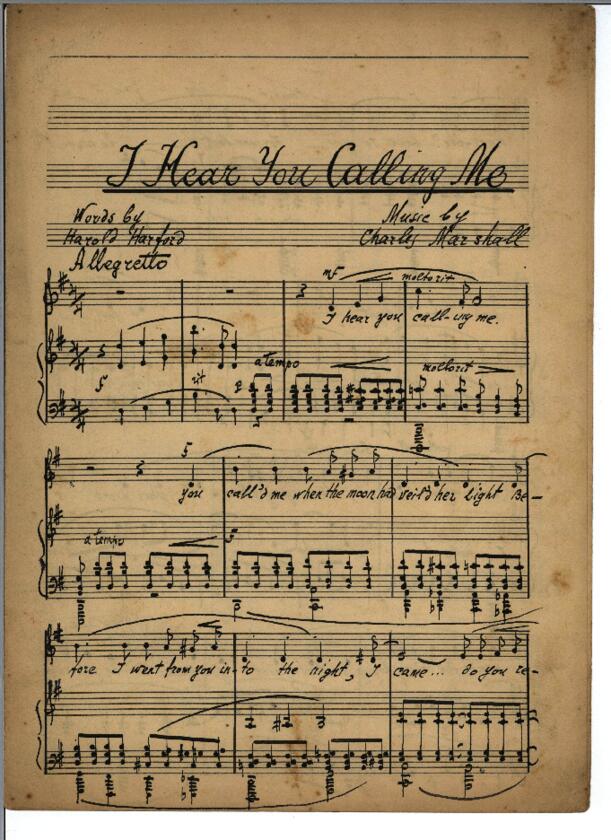 I Hear You Calling Me
Words by
Harold Harford
Music by
Charles Marshall
Allegretto
mf molto rit
I hear you call-ing me.
a tempo
molto rit
rit
You call'd me when the moon had veil'd her light Be-
a tempo
fore I went from you in-to the night, I came... do you re-